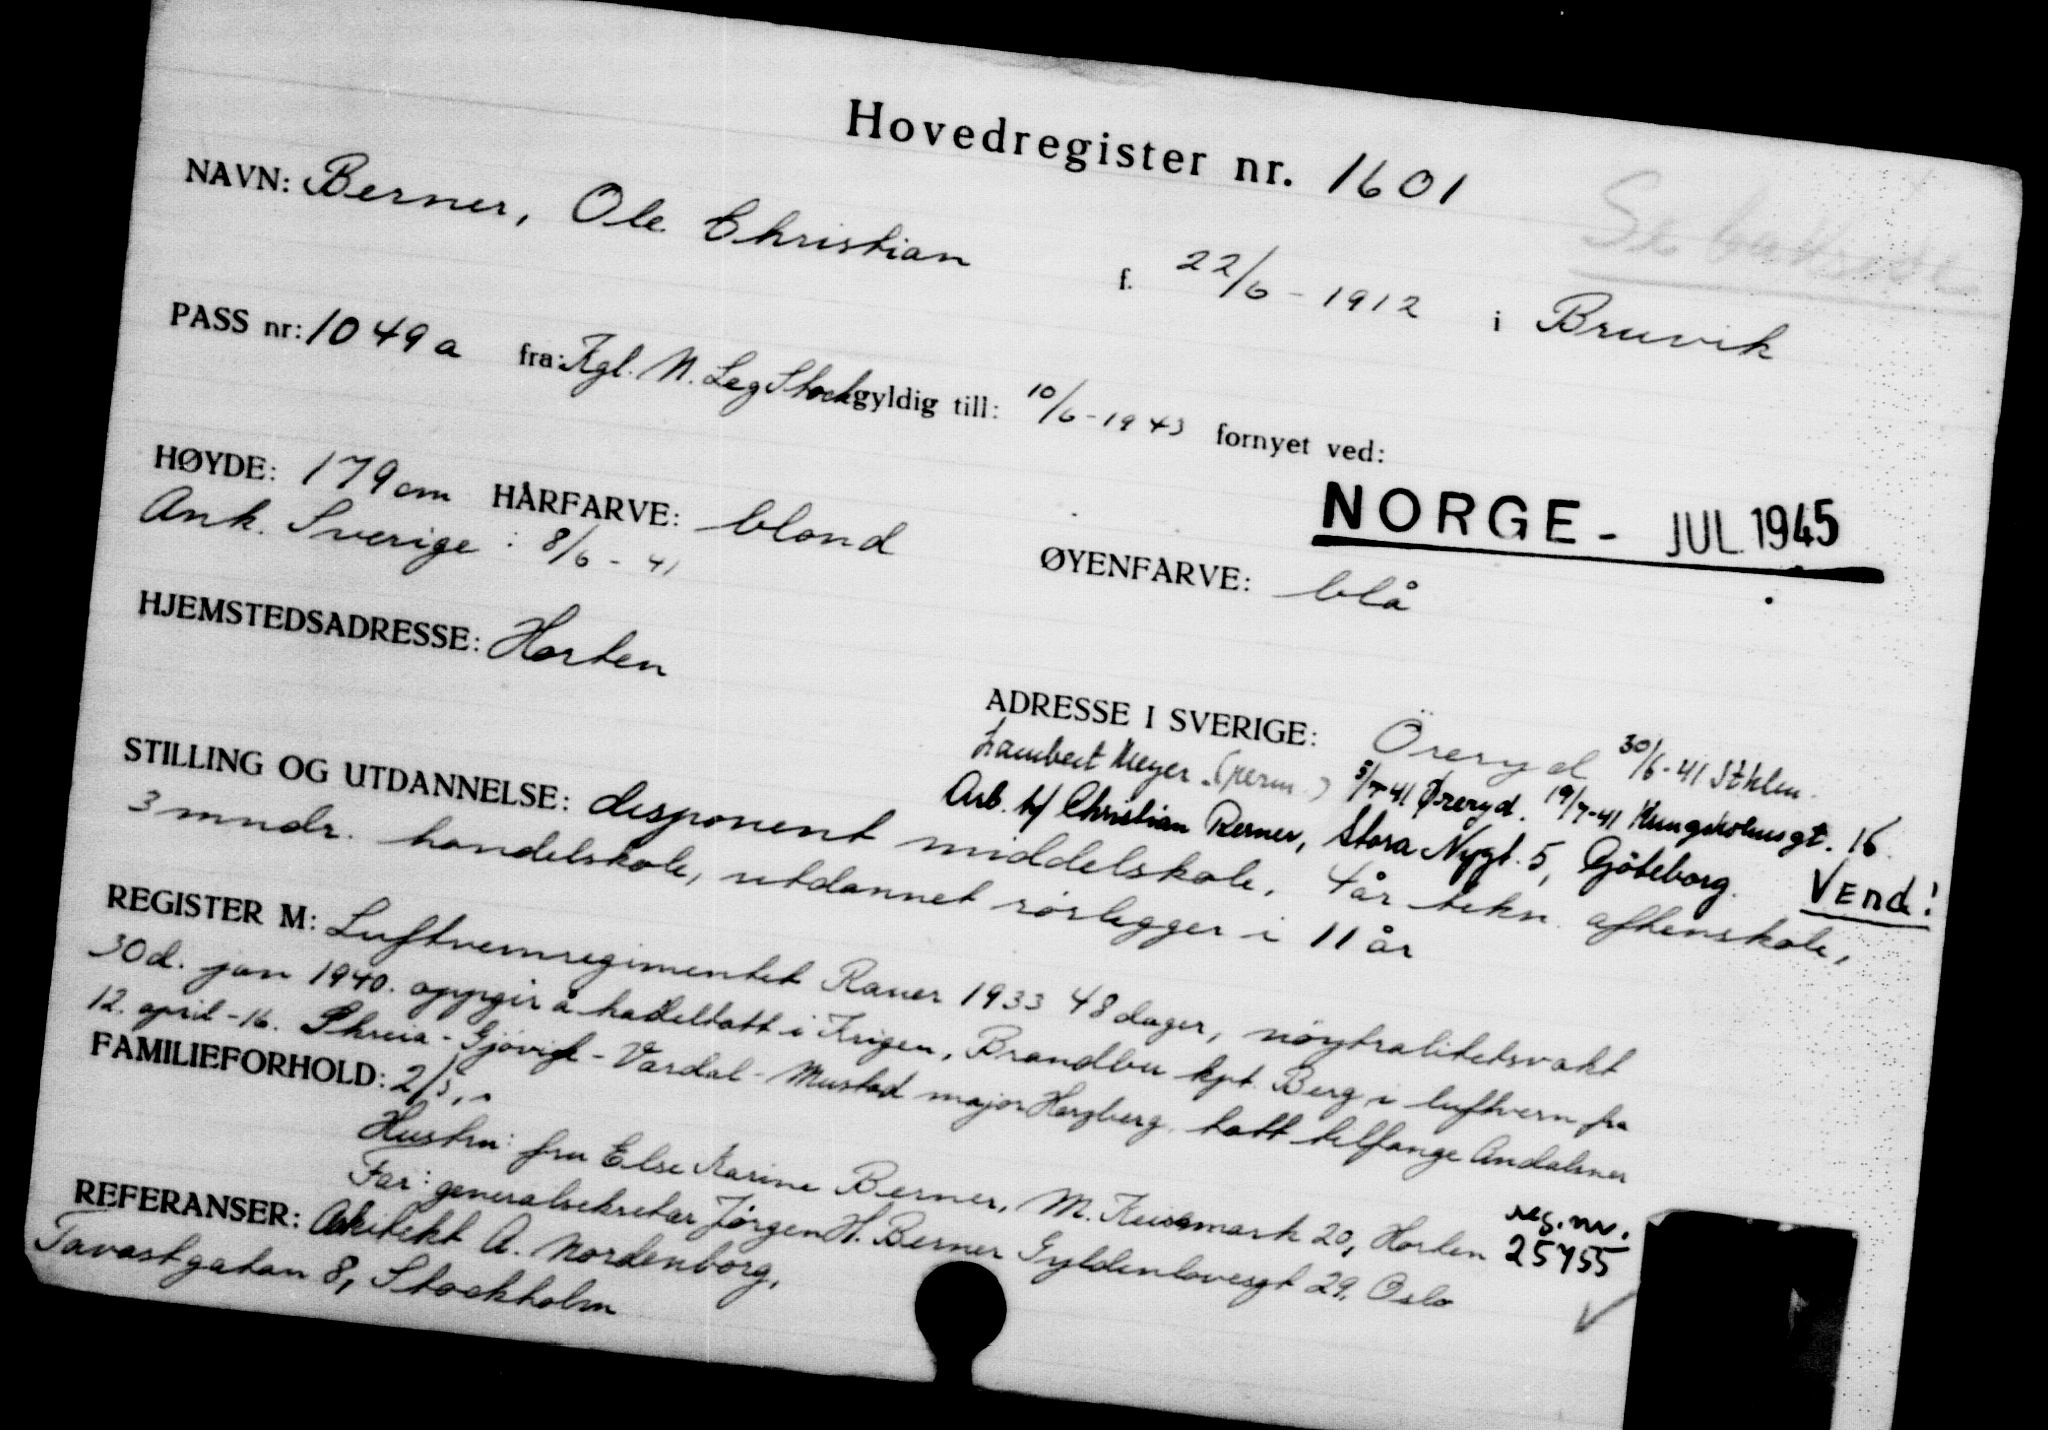 Hovedregister nr. 1601
NAVN: Berner, Ole Christian f. 22/6 - 1912 i Bruvik
PASS nr: 1049a fra: Kgl. N. Leg Stock gyldig till: 10/6 - 1943 fornyet ved:
NORGE - JUL 1945
HØYDE: 179 cm HÅRFARVE: blond ØYENFARVE: blå
Ank. Sverige: 8/6 - 41
HJEMSTEDSADRESSE: Horten
ADRESSE I SVERIGE: Öreryd 30/6-41 Sthlm.
Lambert Meyer (perm.) 5/7-41 Øreryd. 19/7-41 Kungsholmsgt. 16.
Arb. h/ Christian Berner, Stora Nygt. 5, Göteborg. VEnd!
STILLING OG UTDANNELSE: disponent middelskole, 4 år tekn. aftenskole,
3 mndr. handelskole, utdannet rørlegger i 11 år
REGISTER M: Luftvernregimentet Rauer 1933 48 dager, nøytralitetsvakt
30 d. jan 1940. oppgir å ha deltatt i Krigen, Brandbu kpt. Berg i luftvern fra
12. april - 16. Skreia - Gjövik - Vardal - Mustad major Herzberg. tatt tilfange Andalsnes
FAMILIEFORHOLD: 2/5
Hustru: fru Else Karine Berner, M. 20, Horten
Far: generalsekretær Jørgen H. Berner Gyldenlovesgt 29, Oslo
reg. nr. 25455
REFERANSER: Arkitekt A. Nordenborg,
Tavastgatan 8, Stockholm